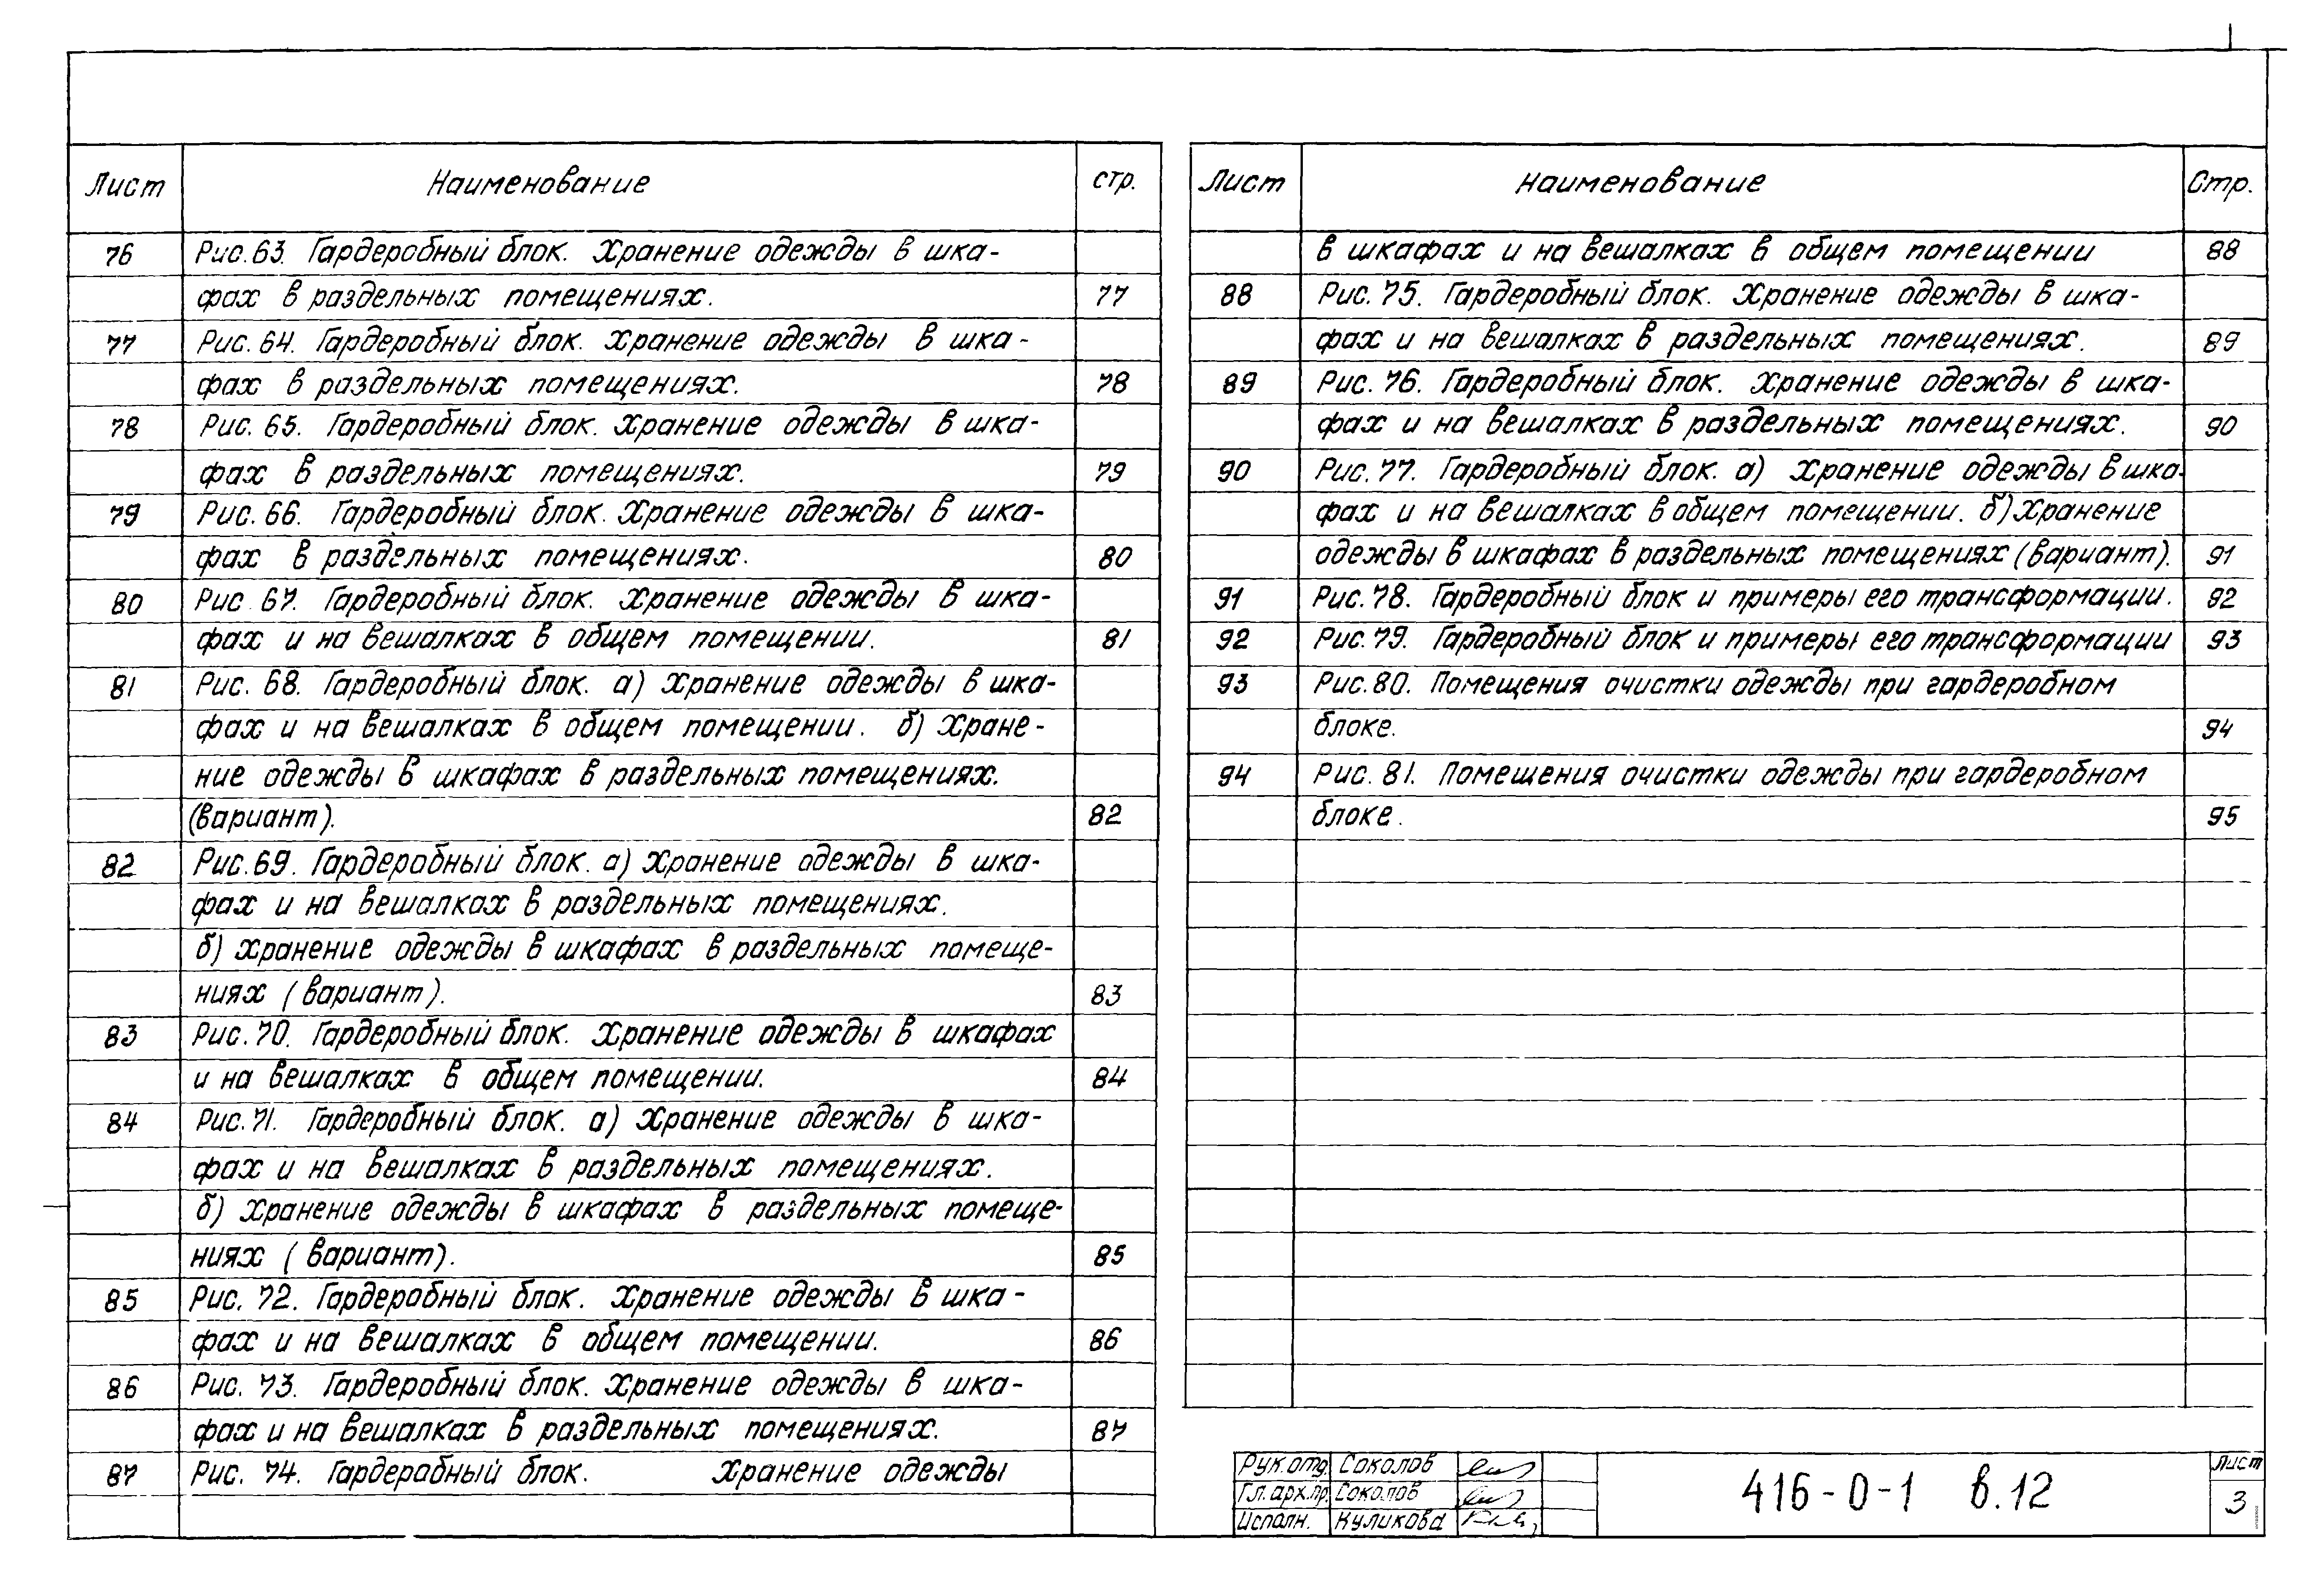 Лист Наименование стр.
76 Рис.63. Гардеробный блок. Хранение одежды в шка-
фах в раздельных помещениях. 77
77 Рис. 64. Гардеробный блок. Хранение одежды в шка-
фах в раздельных помещениях. 78
78 Рис. 65. Гардеробный блок. Хранение одежды в шка-
фах в раздельных помещениях. 79
79 Рис. 66. Гардеробный блок. Хранение одежды в шка-
фах в раздельных помещениях. 80
80 Рис 67. Гардеробный блок. Хранение одежды в шка-
фах и на вешалках в общем помещении. 81
81 Рис. 68. Гардеробный блок. а) Хранение одежды в шка-
фах и на вешалках в общем помещении. б) Хране-
ние одежды в шкафах в раздельных помещениях.
(вариант). 82
82 Рис.69. Гардеробный блок. а) Хранение одежды в шка-
фах и на вешалках в раздельных помещениях.
б) Хранение одежды в шкафах в раздельных помеще-
ниях (вариант). 83
83 Рис.70. Гардеробный блок. Хранение одежды в шкафах
и на вешалках в общем помещении. 84
84 Рис.71. Гардеробный блок. а) Хранение одежды в шка-
фах и на вешалках в раздельных помещениях.
б) Хранение одежды в шкафах в раздельных помеще-
ниях (вариант). 85
85 Рис. 72. Гардеробный блок. Хранение одежды в шка-
фах и на вешалках в общем помещении. 86
86 Рис. 73. Гардеробный блок. Хранение одежды в шка-
фах и на вешалках в раздельных помещениях. 87
87 Рис. 74. Гардеробный блок. Хранение одежды
Лист Наименование Стр.
в шкафах и на вешалках в общем помещении 88
88 Рис. 75. Гардеробный блок. Хранение одежды в шка-
фах и на вешалках в раздельных помещениях. 89
89 Рис. 76. Гардеробный блок. Хранение одежды в шка-
фах и на вешалках в раздельных помещениях. 90
90 Рис. 77. Гардеробный блок. а) Хранение одежды в шка-
фах и на вешалках в общем помещении. б) Хранение
одежды в шкафах в раздельных помещениях (вариант). 91
91 Рис. 78. Гардеробный блок и примеры его трансформации. 92
92 Рис.79. Гардеробный блок и примеры его трансформации 93
93 Рис.80. Помещения очистки одежды при гардеробном
блоке. 94
94 Рис. 81. Помещения очистки одежды при гардеробном
блоке. 95
Рук.отд. Соколов
Гл.арх.пр. Соколов
Исполн. Куликова
416-0-1 в.12
Лист
3